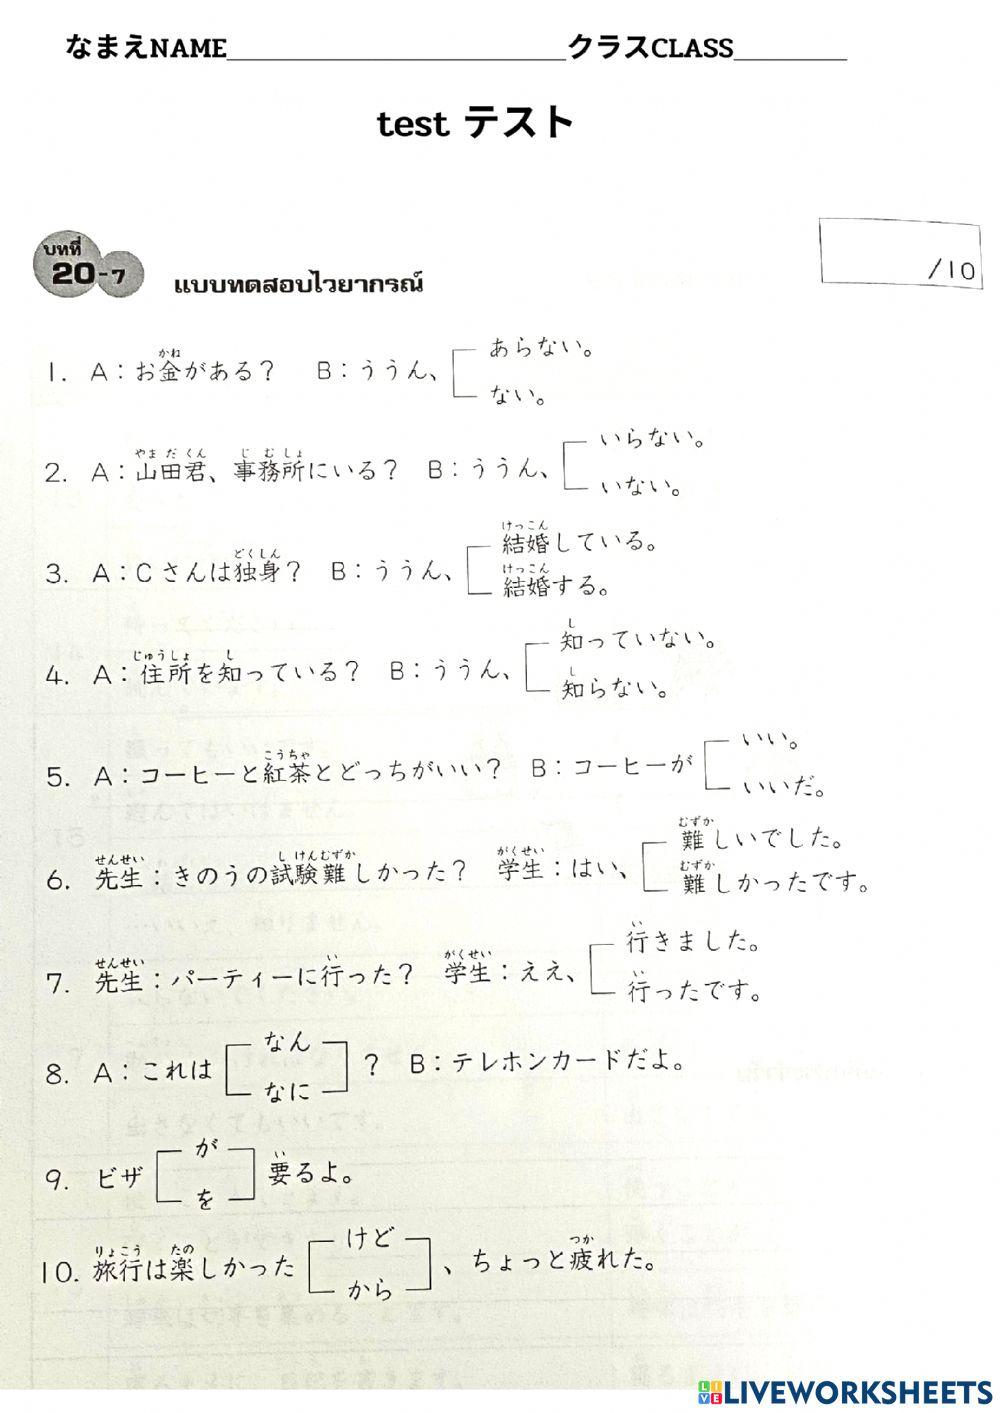 なまえNAME________________________クラスCLASS________
test テスト
บทที่
20-7
แบบทดสอบไวยากรณ์
/10
かね
1. A：お金がある？ B：ううん、
あらない。
ない。
やまだくん じむしょ
2. A：山田君、事務所にいる？ B：ううん、
いらない。
いない。
どくしん
3. A：Cさんは独身？ B：ううん、
けっこん
結婚している。
けっこん
結婚する。
じゅうしょ し
4. A：住所を知っている？ B：ううん、
し
知っていない。
し
知らない。
こうちゃ
5. A：コーヒーと紅茶とどっちがいい？ B：コーヒーが
いい。
いいだ。
せんせい しけんむずか がくせい
6. 先生：きのうの試験難しかった？ 学生：はい、
むずか
難しいでした。
むずか
難しかったです。
せんせい い がくせい
7. 先生：パーティーに行った？ 学生：ええ、
い
行きました。
い
行ったです。
8. A：これは
なん
なに
？ B：テレホンカードだよ。
9. ビザ
が
を
い
要るよ。
りょこう たの
10. 旅行は楽しかった
けど
から
つか
、ちょっと疲れた。
LIVEWORKSHEETS